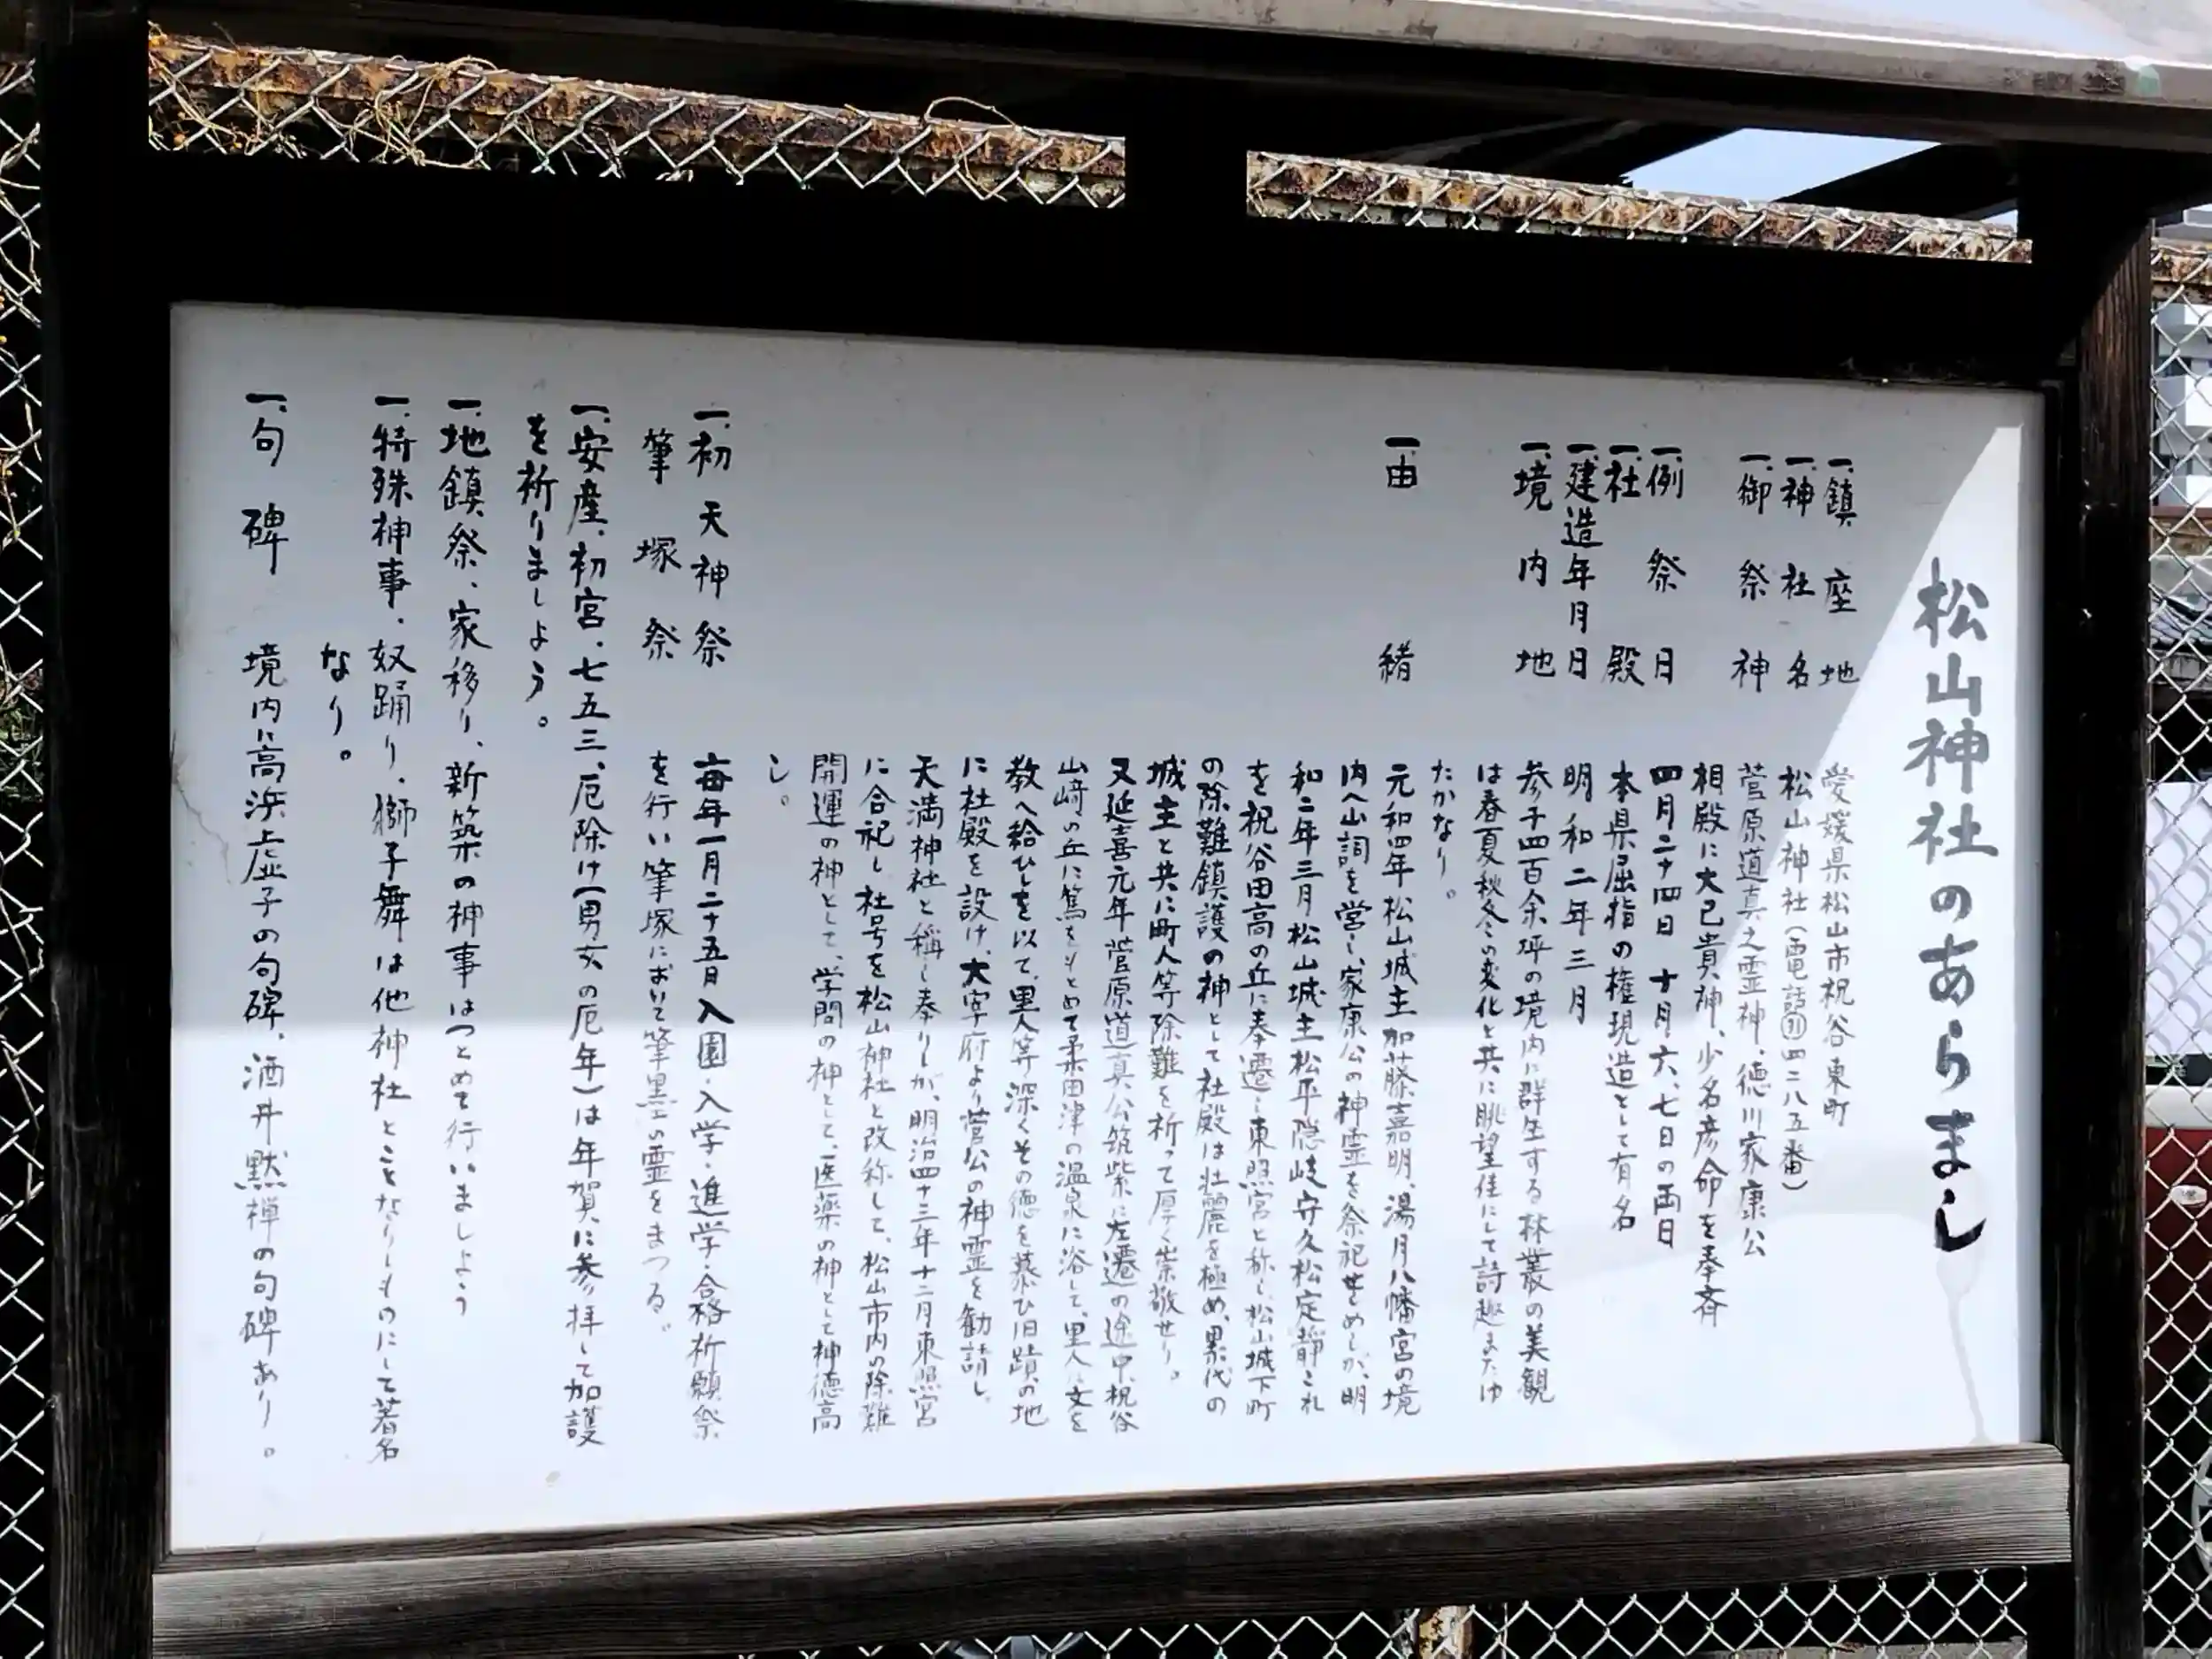 松山神社のあらまし
一、鎮座地 愛媛県松山市祝谷東町
一、神社名 松山神社(電話㊶四二八五番)
一、御祭神 菅原道真之霊神、徳川家康公
相殿に大己貴神、少名彦命を奉斉
一、例祭日 四月二十四日 十月六、七日の両日
一、社殿 本県屈指の権現造として有名
一、建造年月日 明和二年三月
一、境内地 参千四百余坪の境内に群生する林叢の美観
は春夏秋冬の変化と共に眺望佳にして詩趣またゆ
たかなり。
一、由緒 元和四年松山城主加藤嘉明、湯月八幡宮の境
内へ山詞を営し、家康公の神霊を祭祀せしめしが、明
和二年三月松山城主松平隠岐守久松定静これ
を祝谷田高の丘に奉遷し東照宮と称し、松山城下町
の除難鎮護の神として社殿は壮麗を極め、累代の
城主と共に町人等除難を祈って厚く崇敬せり。
又延喜元年菅原道真公筑紫に左遷の途中、祝谷
山﨑の丘に篤をもとめて柔田津の温泉に浴して、里人に文を
教へ給ひしを以て、里人等深くその徳を慕ひ旧蹟の地
に社殿を設け、大宰府より菅公の神霊を勧請し、
天満神社と稱し奉りしが、明治四十三年十二月東照宮
に合祀し、社号を松山神社と改称して、松山市内の除難
開運の神として、学問の神として、医薬の神として神徳高
し。
一、初天神祭 毎年一月二十五日入園・入学・進学・合格祈願祭
筆塚祭 を行い筆塚において筆墨の霊をまつる。
一、安産、初宮、七五三、厄除け(男女の厄年)は年賀に参拝して加護
を祈りましょう。
一、地鎮祭、家移り、新築の神事はつとめて行いましょう
一、特殊神事、奴踊り、獅子舞は他神社とことなりしものにして著名
なり。
一、句碑 境内に高浜虚子の句碑、酒井黙禅の句碑あり。